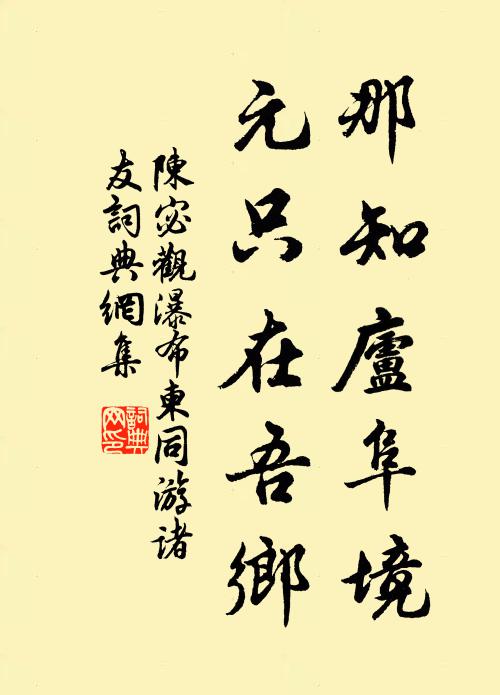 那知廬阜境
元只在吾鄉
陳宓觀瀑布東同游諸
友詞典網集
詞典
网印